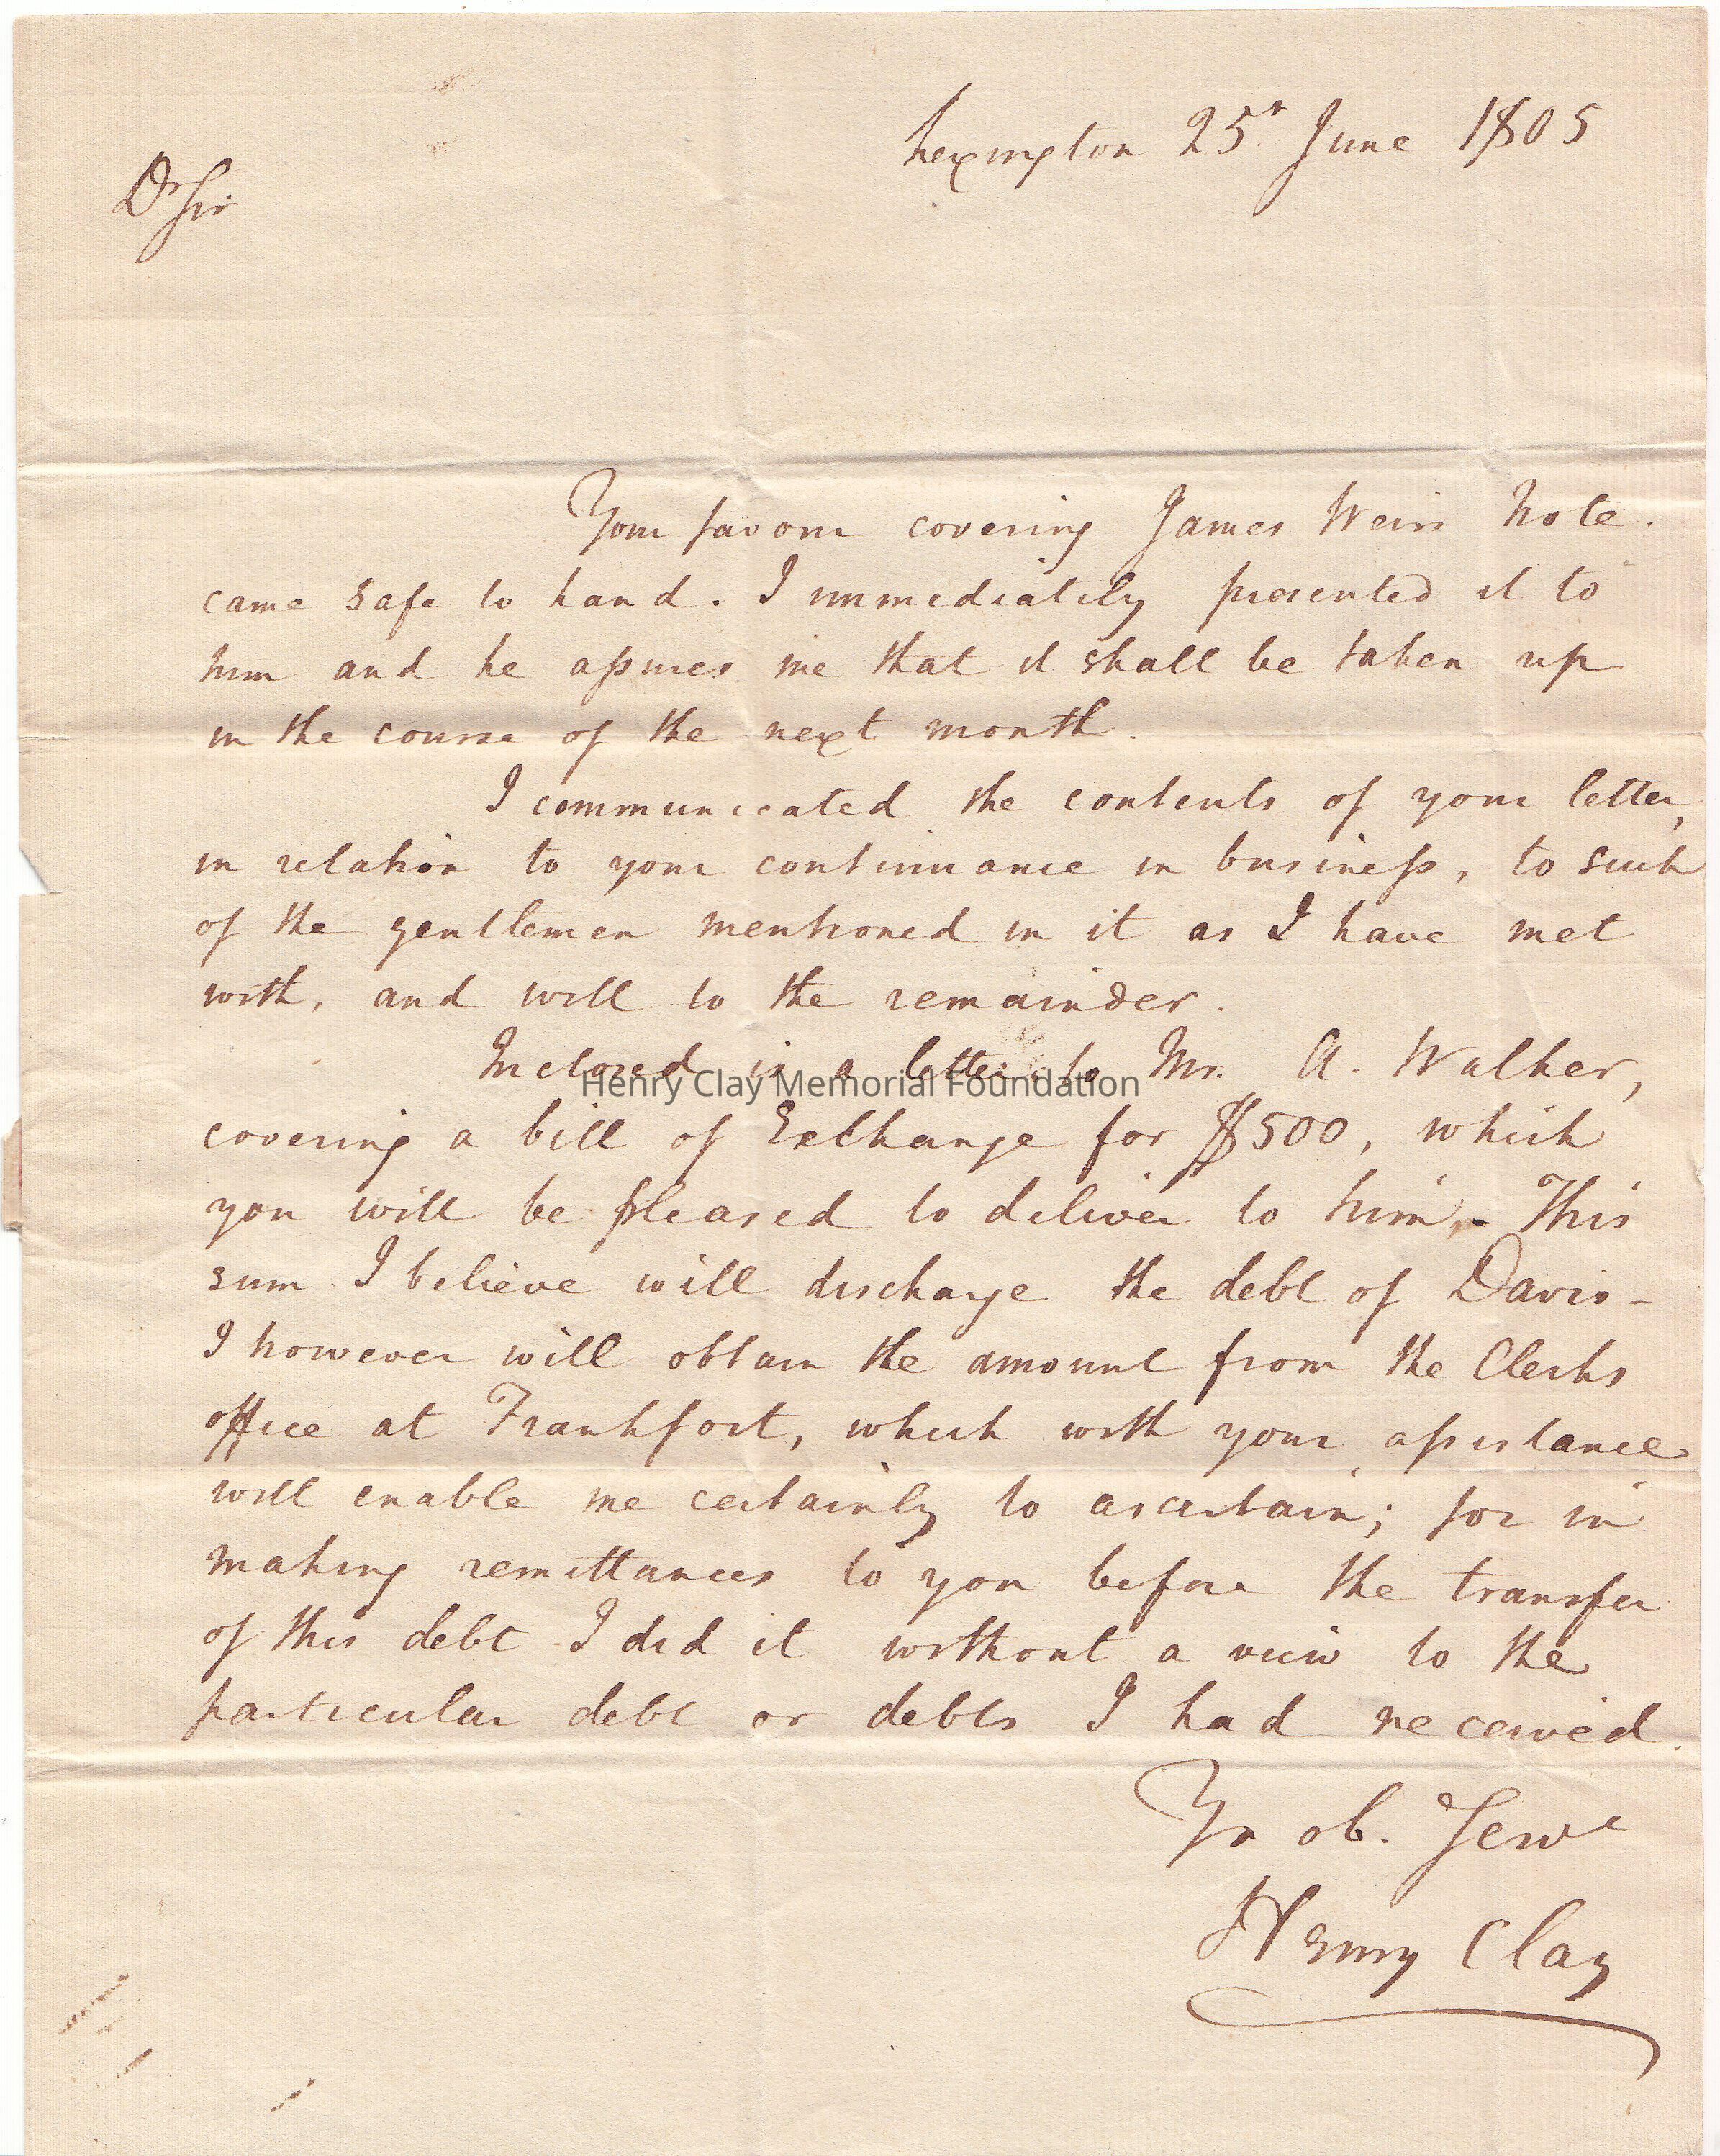 Lexington 25th June 1805
Dr Sir
Your favour covering James Weirs Note.
came safe to hand. I immediately presented it to
him and he assures me that it shall be taken up
in the course of the next month.
I communicated the contents of your letter,
in relation to your continuance in business, to such
of the gentlemen mentioned in it as I have met
with, and will to the remainder.
Inclosed is a letter to Mr. A. Walker,
Henry Clay Memorial Foundation
covering a bill of Exchange for $500, which
you will be pleased to deliver to him. - This
sum I believe will discharge the debt of Davis -
I however will obtain the amount from the Clerks
office at Frankfort, which with your assistance
will enable me certainly to ascertain; for in
making remittances to you before the transfer
of this debt I did it without a view to the
particular debt or debts I had received.
Yr ob. Servt
Henry Clay